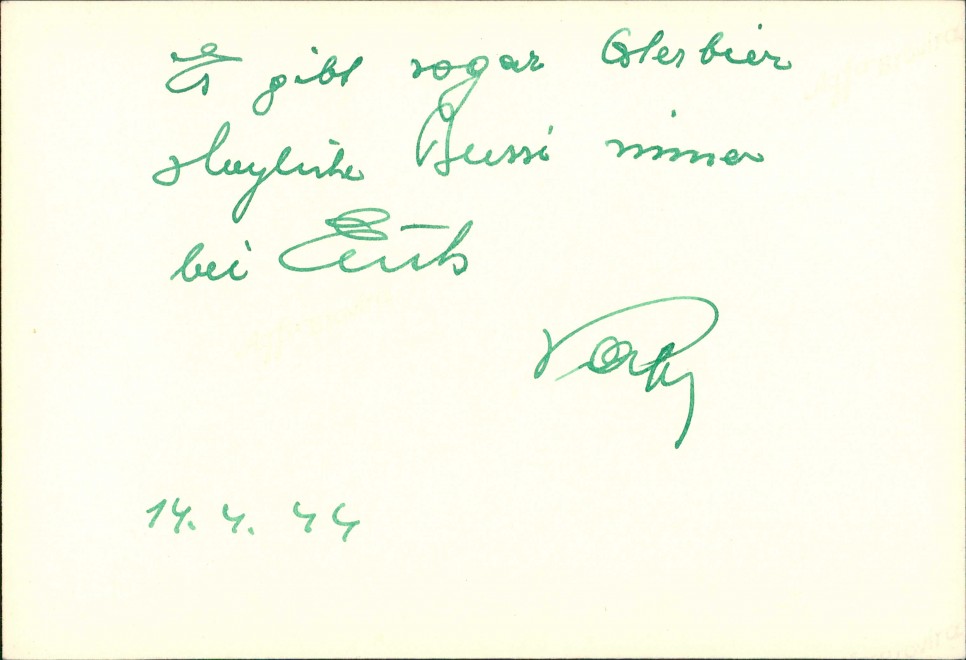 Es gibt sogar Osterbier
Herzliche Bussi immer
bei Euch
14. 4. 44